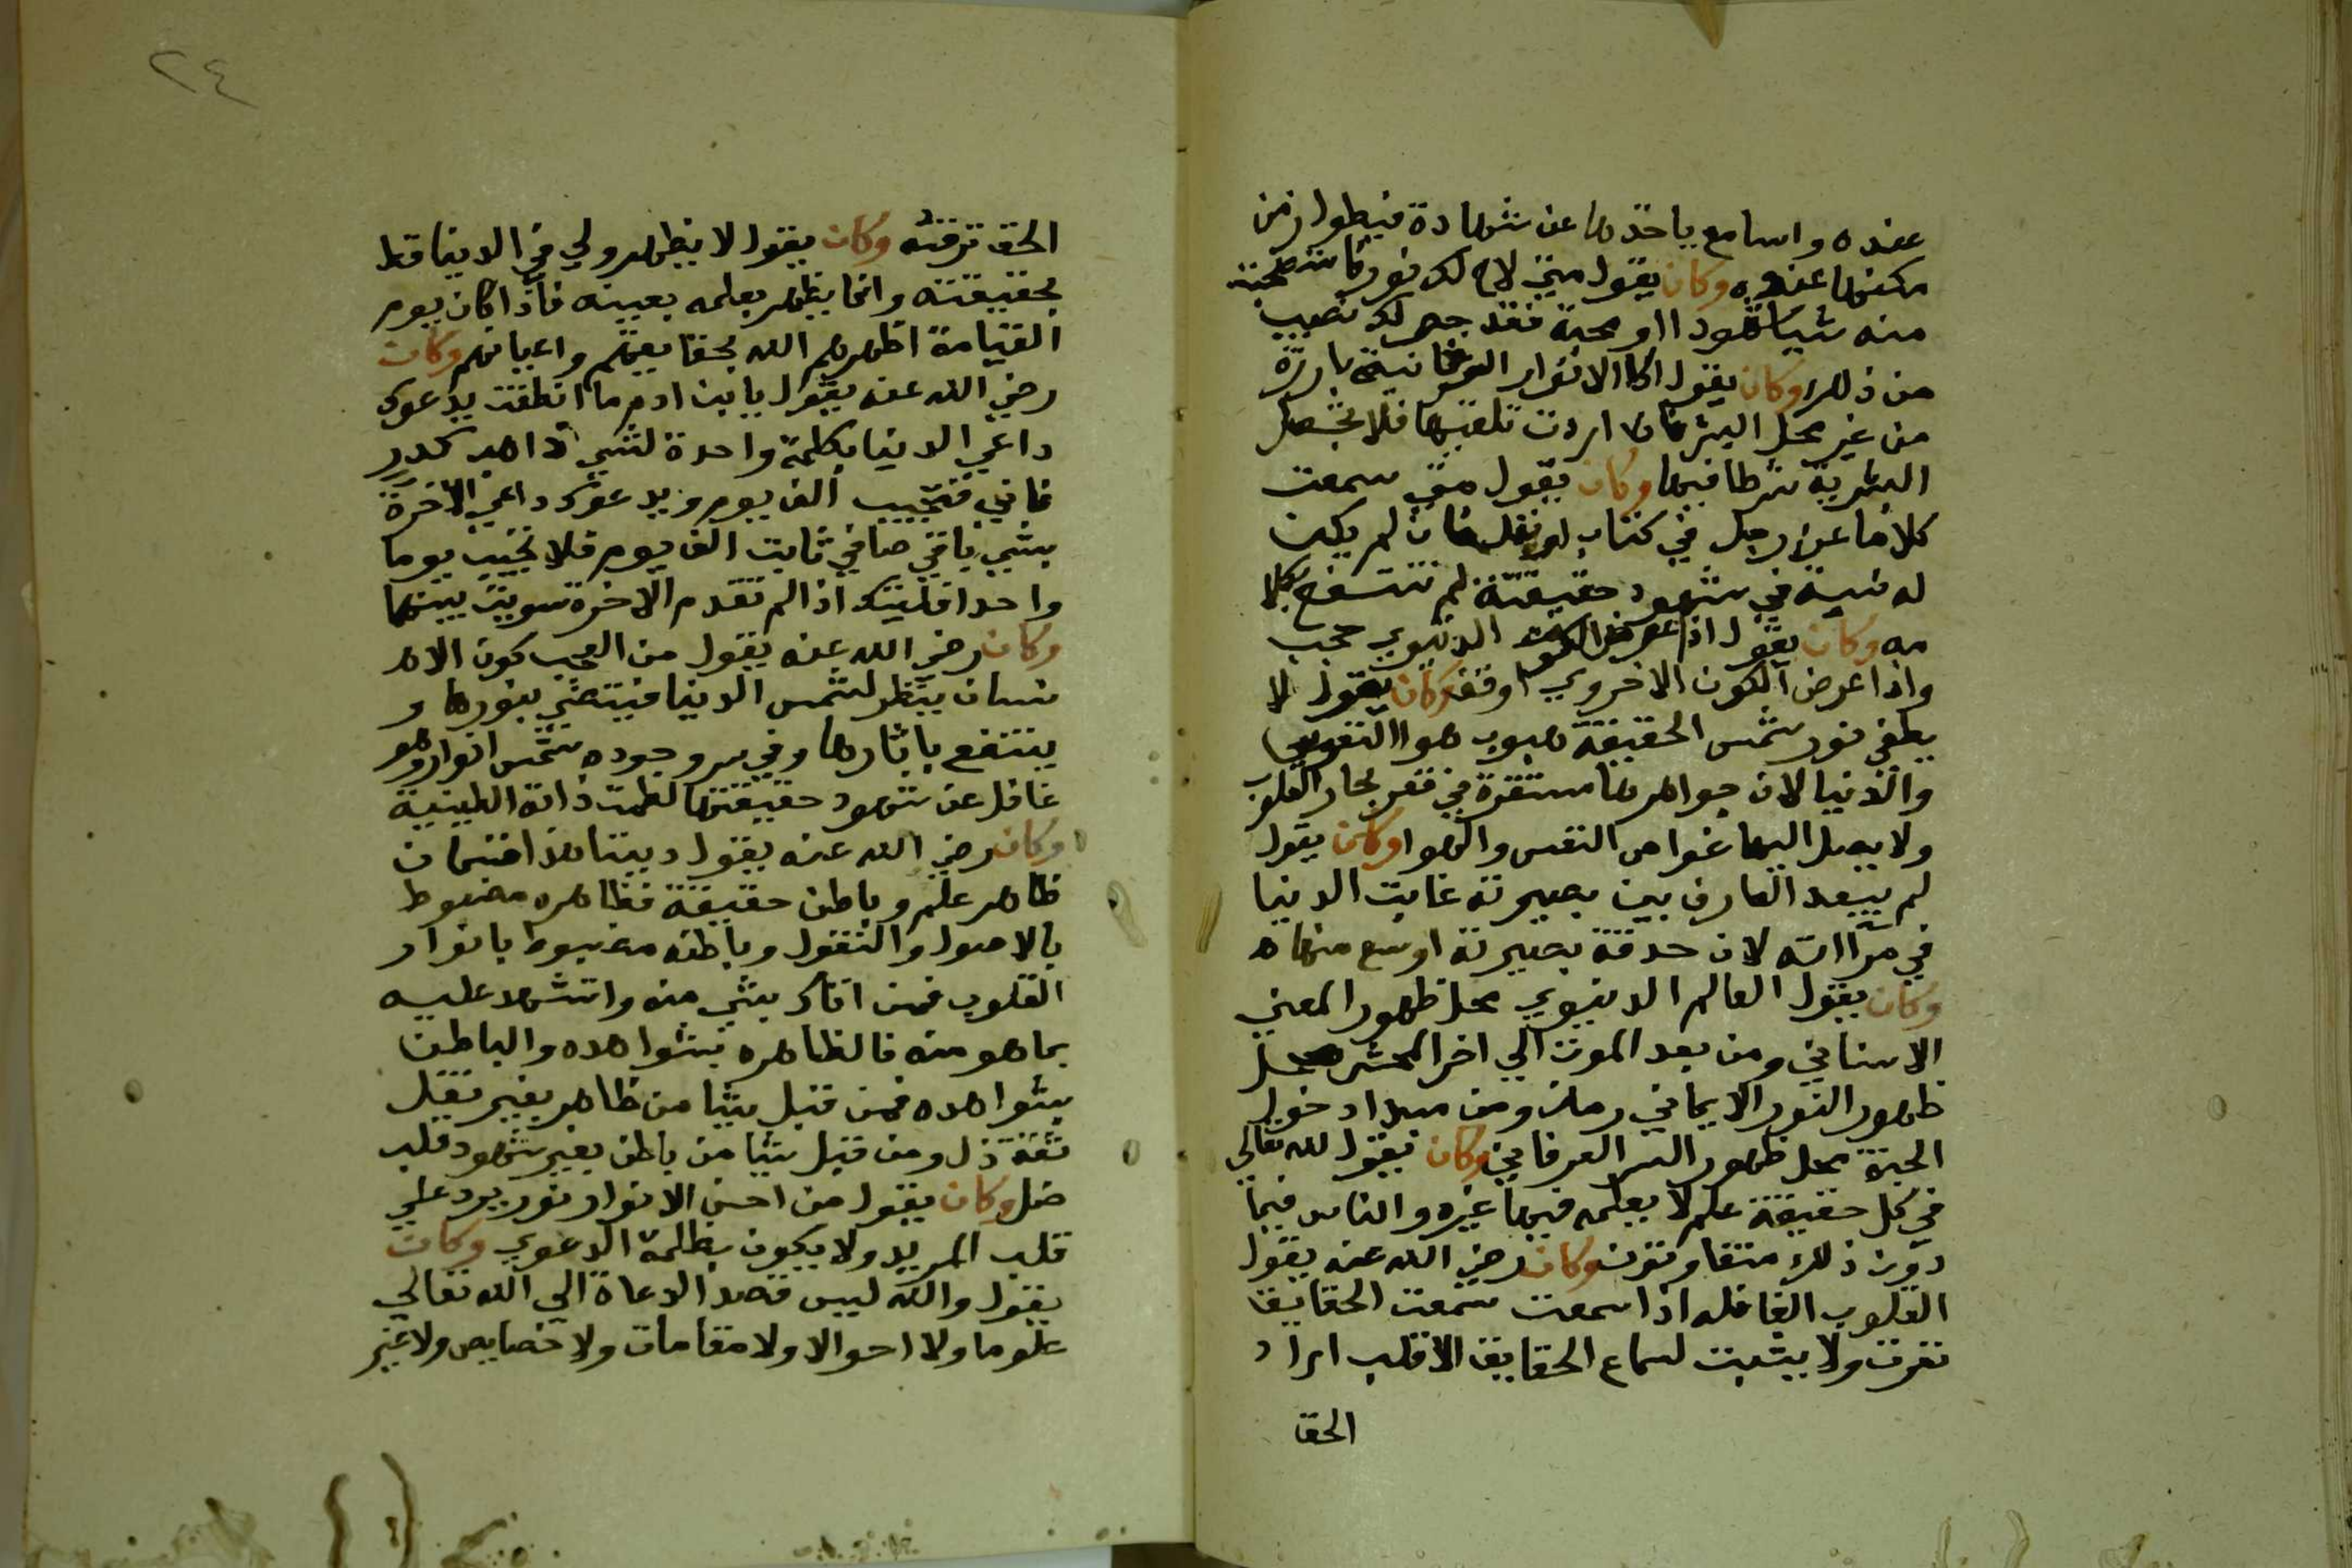 عنده واسامع ياخذها عن شهادة فيطول زمن
مكثها عنده وكان يقول متي لاح لك نور فاستطعت
منه شيا شهودا او محبة فقد جعل لك نصيب
من ذلك وكان يقول اكا الانوار العرفانية بارزة
من غير محل البشر فان اردت تلقيها فلا تجعل
البشرية شرطا فيها وكان يقول متي سمعت
كلاما عن رجل في كتاب او نقل فان لم يكن
له نسبة في شهود حقيقته لم تنتفع بكلا
مه وكان يقول اذا عرض الكون الدنيوي حجب
واذا عرض الكون الاخروي اوقف وكان يقول لا
يطفي نور شمس الحقيقة هبوب هوا النفوس
والدنيا لان جواهرها مستقرة في قعر بحار القلوب
ولا يصل اليها غواص النفس والهوا وكان يقول
لم يبعد العارف بين بصيرته غابت الدنيا
في مرآاته لان حدقة بصيرته اوسع منها ه
وكان يقول العالم الدنيوي محل ظهور المعني
الاسناني ومن بعد الموت الي اخر المحشر محل
ظهور النور الايماني زمان ومن مبدا دخول
الجنة محل ظهور السر العرفاني وكان يقول لله تعالي
في كل حقيقة علم لا يعلمه فيها غيره والناس فيما
دون ذلك متفاوتون وكان رضي الله عنه يقول
القلوب الغافله اذا سمعت سمعت الحقايق
نفرت ولا يثبت لسماع الحقايق الا قلب اراد
الحق
٢٤
الحق ترقيته وكان يقول لا يظهر ولي في الدنيا قط
بحقيقته وانما يظهر بعلمه بعينه فاذا كان يوم
القيامة اظهرهم الله بحقايقهم واعيانهم وكان
رضي الله عنه يقول يابن ادم ما انطقت يدعوك
داعي الدنيا بكلمة واحدة لشي ذاهب كدر
فاني فتجيب الف يوم ويدعوك داعي الاخرة
بشي باقي صافي ثابت الف يوم فلا تجيب يوما
واحدا فليتك اذا لم تقدم الاخرة سويت بينهما
وكان رضي الله عنه يقول من العجب كون الا
نسان ينظر لشمس الدنيا فيستضي بنورها و
ينتفع باثارها وفي سر وجوده شمس انوار وهو
غافل عن شهود حقيقتها لظلمت ذاته الطينية
وكان رضي الله عنه يقول ديننا هذا قسمان
ظاهر علم وباطن حقيقة فظاهره مضبوط
بالاصول والنقول وباطنه مضبوط بانوار
القلوب فمن اتاك بشي منه واستشهد عليه
بما هو منه فالظاهره بشواهده والباطن
بشواهده فمن قبل شيا من ظاهر بغير نقل
ثقة ذل ومن قبل شيا من باطن بغير شهود قلب
ضل وكان يقول من احسن الانوار نور يرد علي
قلب المريد ولا يكون بظلمة الدعوي وكان
يقول والله ليس قصد الدعاة الي الله تعالي
علوما ولا احوالا ولا مقامات ولا خصايص ولا غير